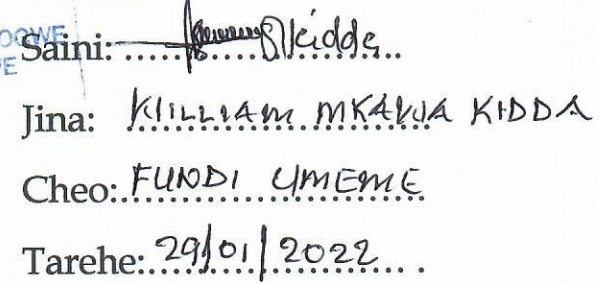 OGWE
PE
Saini: ........ Kidda..
Jina: WILLIAM MKAWA KIDDA
Cheo: FUNDI UMEME
Tarehe: 29/01/2022